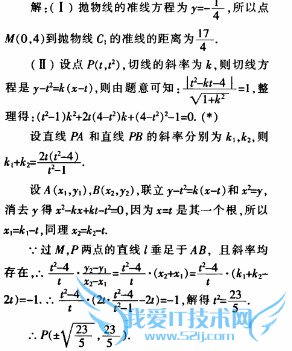 解:(Ⅰ)抛物线的准线方程为y=-1/4,所以点
M(0,4)到抛物线C₁的准线的距离为17/4.
(Ⅱ)设点P(t,t²),切线的斜率为k,则切线方
程是y-t²=k(x-t),则由题意可知:|t²-kt-4|/√(1+k²)=1,整
理得:(t²-1)k²+2t(4-t²)k+(4-t²)²-1=0. (*)
设直线PA和直线PB的斜率分别为k₁,k₂,则
k₁+k₂=2t(t²-4)/(t²-1).
设A(x₁,y₁),B(x₂,y₂),联立y-t²=k(x-t)和x²=y,
消去y得x²-kx+kt-t²=0,因为x=t是其一个根,所以
x₁=k₁-t,同理x₂=k₂-t.
∵过M,P两点的直线l垂足于AB,且斜率均
存在,∴(t²-4)/t·(y₂-y₁)/(x₂-x₁)=(t²-4)/t·(x₂+x₁)=(t²-4)/t·(k₁+k₂-
2t)=-1.∴(t²-4)/t·(2t·(t²-4)/(t²-1)-2t)=-1,解得t²=23/5.
∴P(±√(23/5),23/5).
我爱IT技术网